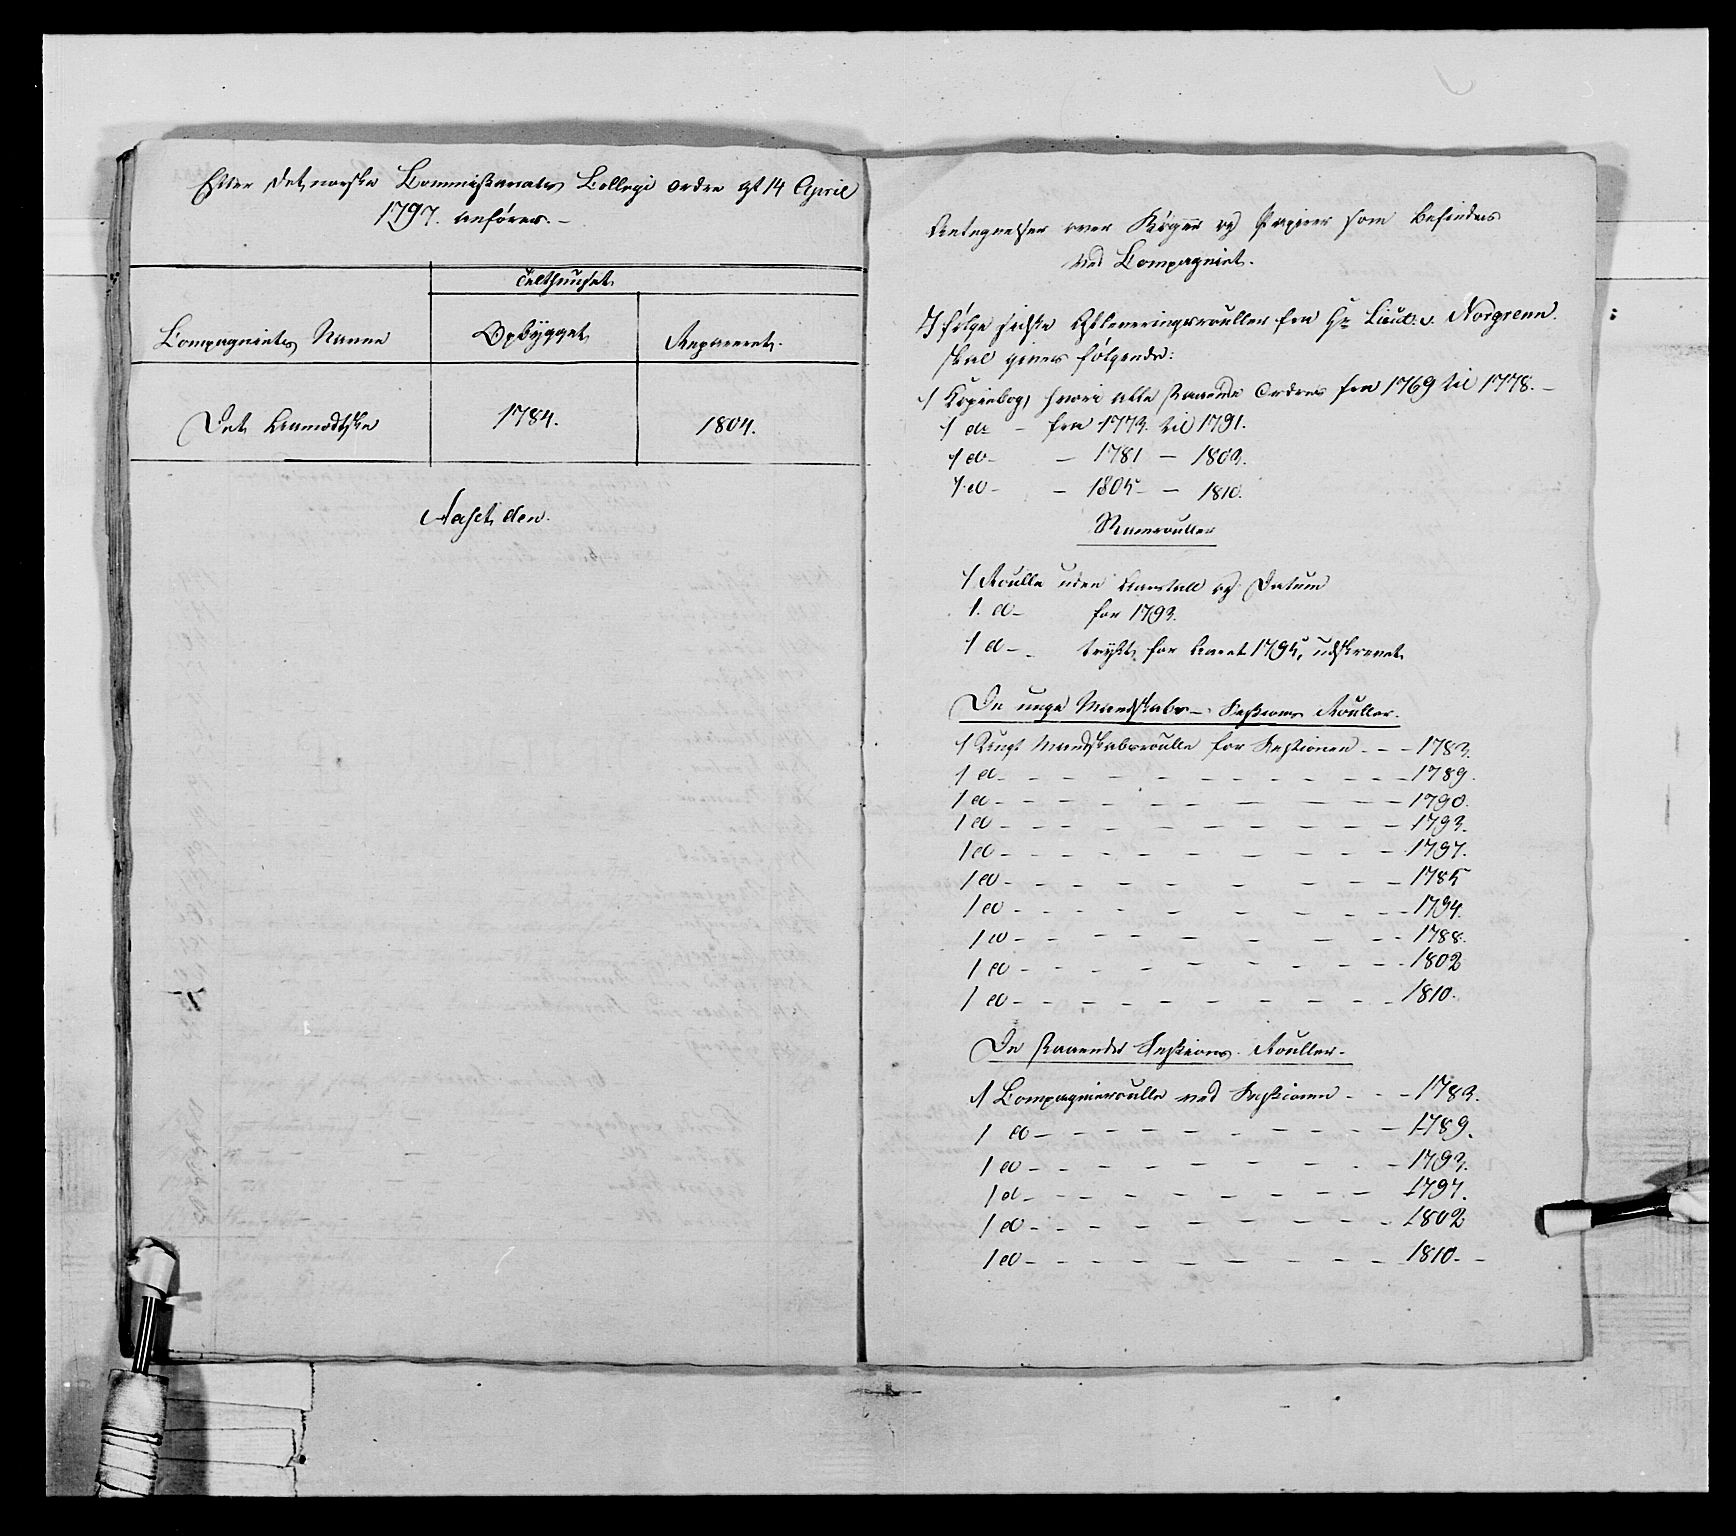 Efter det norske Commissariats Collegi ordre af 14 April
1797. anføres. -
Telthuuset
Compagniets Navn
Opbygget
Repareret.
Det Aamodtske
1784.
1804.
Aaset den.
Antegnelser over Bøger og Papirer som befindes
ved Compagniet.
Ifølge sidste Afleveringsrouller fra Hr Lieut: v. Norgrenn.
skal gives følgende:
1 Kopiebog, hvori alle staaende Ordres fra 1769 til 1778. -
1 do - fra 1773. til 1791.
1 do - - 1781 - 1803.
1 do - - 1805 - - 1810.
Stamrouller
1 Roulle uden Aarstall og Datum
1. do - for 1793.
1 do - trykt for Aaret 1795, udskrevet
De unge Mandskabs - Sessions Rouller.
1 Ungt Mandskabsroulle for Sessionen - - - 1783.
1 do - - - 1789.
1 do - - - 1790.
1 do - - - 1793.
1 do - - - 1797.
1 do - - - 1785
1 do - - - 1794.
1 do - - - 1788.
1 do - - - 1802
1 do - - - 1810.
De staaende Sessions Rouller.
1 Compagnieroulle ved Sessionen - - - 1783.
1 do - - - 1789.
1 do - - - 1793.
1 do - - - 1797.
1 do - - - 1802
1 do - - - 1810. -